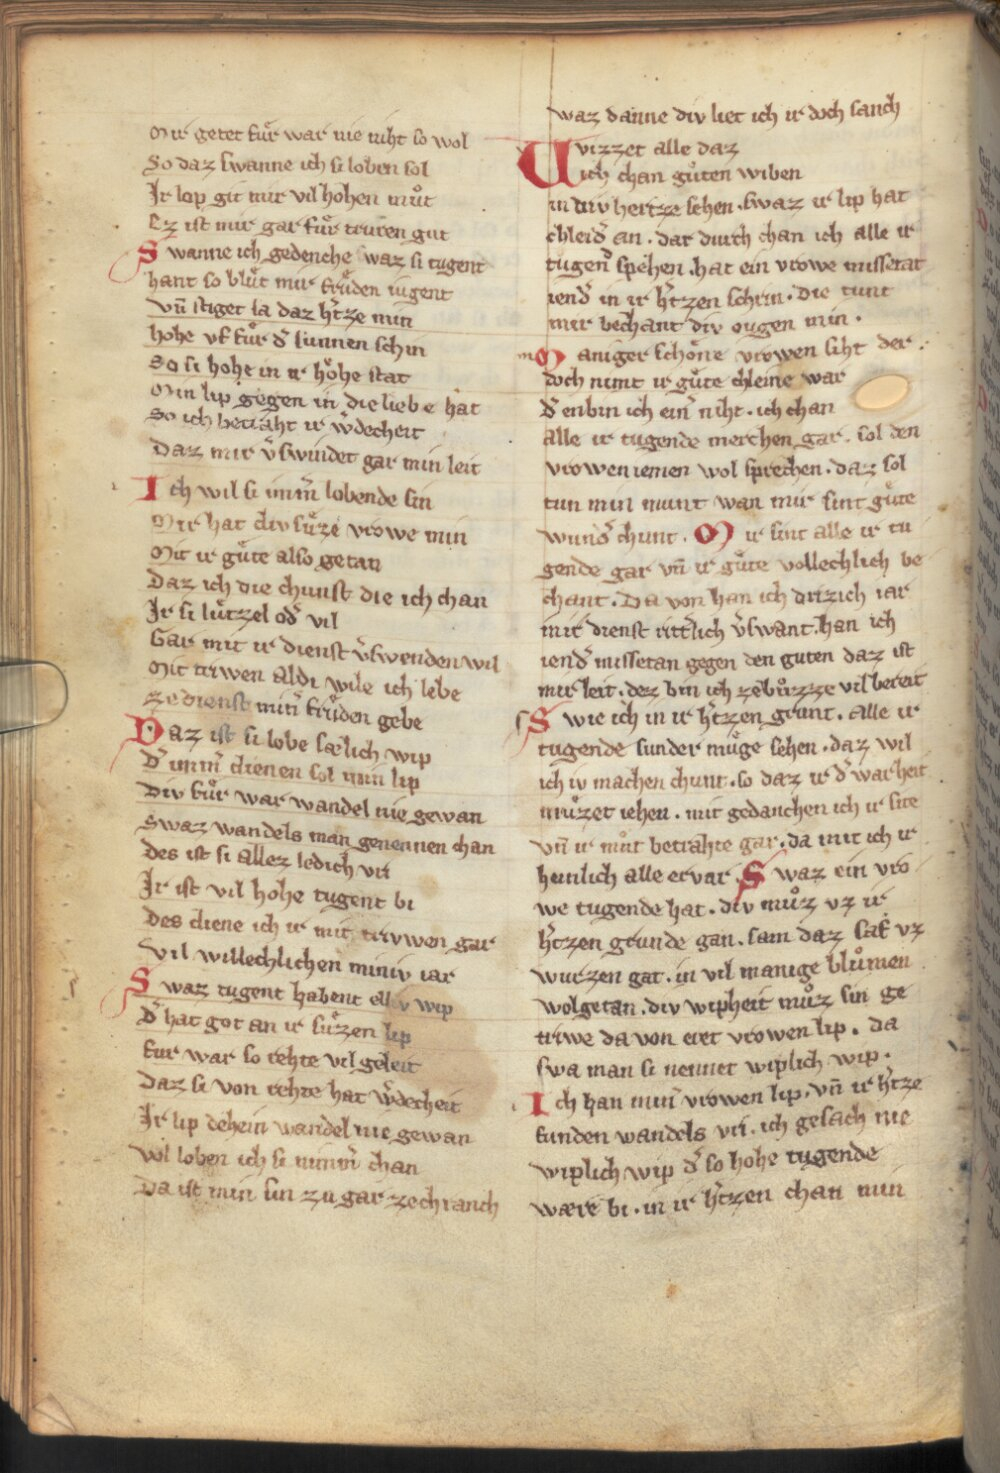 Mir getet fuͤr war nie niht so wol
So daz swanne ich si loben sol
Ir lop git mir vil hohen muͦt
Ez ist mir gar fuͤr truren gut
Swanne ich gedenche waz si tugent
hant so bluͤt mir fruͤden iugent
vn̄ stiget sa daz h̾tze min
hohe vf fuͤr d̾ sunnen schin
So si hohe in ir hoͤhe stat
Min lip gegen in die liebe hat
So ich betraht ir w̾decheit
Daz mir v̾swindet gar min leit
Ich wil si imm̾ lobende sin
Mir hat div suͤze vrowe min
Mit ir guͤte also getan
Daz ich die chunst die ich chan
Ir si luͤtzel od̾ vil
Gar mit ir dienst v̾swenden wil
Mit triwen aldi wile ich lebe
ze dienst min̾ fruͤden gebe
Daz ist si lobe sælich wip
D̾ imm̾ dienen sol min lip
Div fuͤr war wandel nie gewan
Swaz wandels man genennen chan
Des ist si allez ledich vri
Ir ist vil hohe tugent bi
Des diene ich ir mit trivwen gar
Vil willechlichen miniv iar
Swaz tugent habent elliv wip
D̾ hat got an ir suͤzen lip
fur war so rehte vil geleit
Daz si von rehte hat w̾decheit
Ir lip dehein wandel nie gewan
Wol loben ich si nimm̾ chan
Da ist min sin zu gar ze chranch
waz danne div liet ich ir doch sanch
Vvizzet alle daz
ich chan guͦten wiben
in div hertze sehen . swaz ir lip hat
chleid̾ an . dar durch chan ich alle ir
tugen̾ spehen . hat ein vrowe missetat
iend̾ in ir h̾tzen schrin . die tunt
mir bechant div ougen min .
Maniger schoͤne vrowen siht der
doch nimt ir guͤte chleine war
d̾ enbin ich ein̾ niht . ich chan
alle ir tugende merchen gar . sol den
vrowen iemen wol sprechen . daz sol
tun min munt wan mir sint guͤte
wund̾ chunt . Mir sint alle ir tu
gende gar vn̄ ir guͤte vollechlich be
chant . Da von han ich drizich iar
mit dienst ritt̾lich v̾swant . han ich
iend̾ missetan gegen den guten daz ist
mir leit . dez bin ich ze buͦzze vil bereit
Swie ich in ir h̾tzen grunt . alle ir
tugende sunder muͤge sehen . daz wil
ich iv machen chunt . so daz ir d̾ warheit
muͤzet iehen . mit gedanchen ich ir site
vn̄ ir muͦt betrahte gar . da mit ich ir
heinlich alle ervar . Swaz ein vro
we tugende hat . div muͦz vz ir
h̾tzen grunde gan . sam daz saf vz
wurzen gat . in vil manige bluͦmen
wolgetan . div wipheit muͦz sin ge
triwe da von eret vrowen lip . da
swa man si nennet wiplich wip .
Ich han min̾ vrowen lip . vn̄ ir h̾tze
funden wandels vri . ich gesach nie
wiplich wip d̾ so hohe tugende
wære bi . in ir h̾tzen chan min